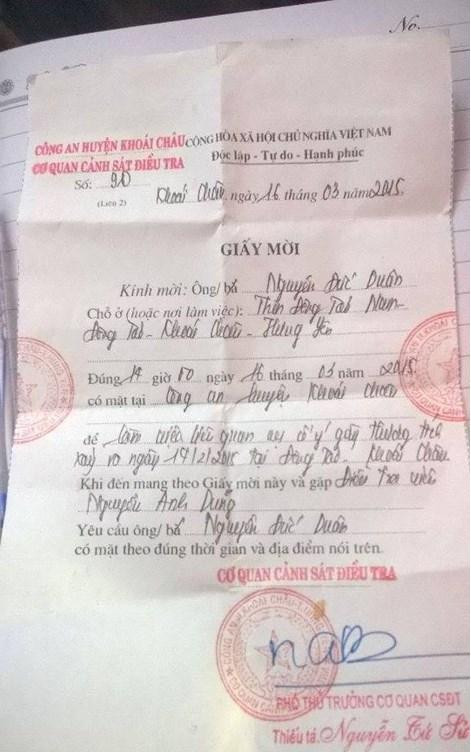 No.
CÔNG AN HUYỆN KHOÁI CHÂU CỘNG HÒA XÃ HỘI CHỦ NGHĨA VIỆT NAM
CƠ QUAN CẢNH SÁT ĐIỀU TRA Độc lập - Tự do - Hạnh phúc
Số: 90 Khoái Châu, ngày 16 tháng 03 năm 2015
(Liên 2)
GIẤY MỜI
Kính mời: Ông/ bà Nguyễn Đức Duân
Chỗ ở (hoặc nơi làm việc): Thôn Đông Tảo Nam-
Đông Tảo - Khoái Châu - Hưng Yên
Đúng 14 giờ 00 ngày 16 tháng 03 năm 2015
có mặt tại Công an huyện Khoái Châu
để làm việc liên quan vụ cố ý gây thương tích
xảy ra ngày 17/2/2015 tại Đông Tảo - Khoái Châu
Khi đến mang theo Giấy mời này và gặp Điều tra viên
Nguyễn Anh Dũng
Yêu cầu ông/ bà Nguyễn Đức Duân
có mặt theo đúng thời gian và địa điểm nói trên.
CƠ QUAN CẢNH SÁT ĐIỀU TRA
PHÓ THỦ TRƯỞNG CƠ QUAN CSĐT
Thiếu tá. Nguyễn